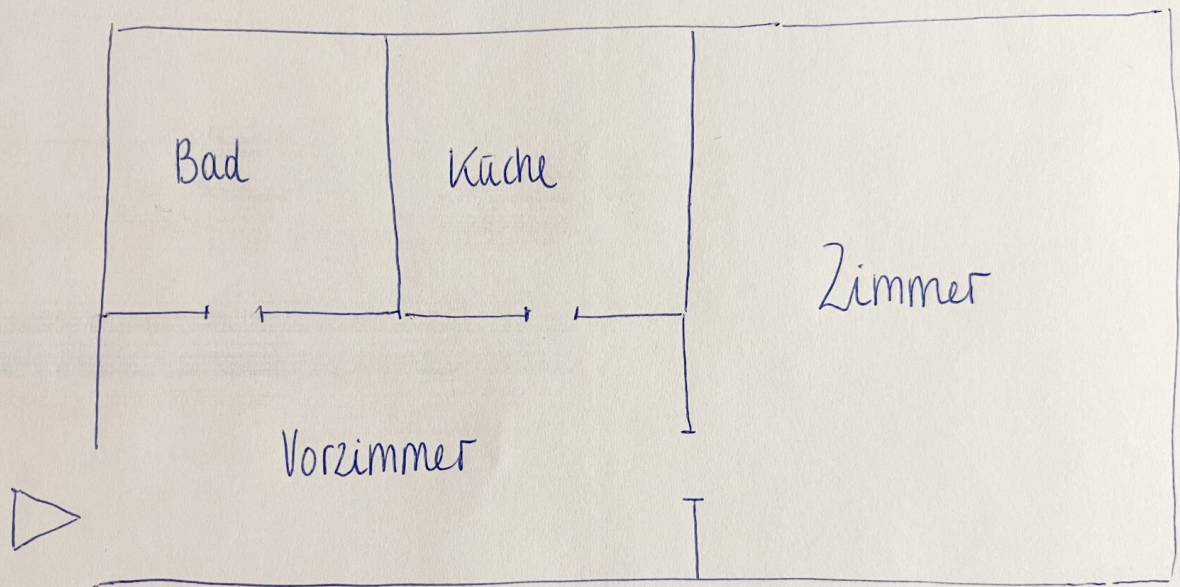 Bad
Küche
Zimmer
Vorzimmer